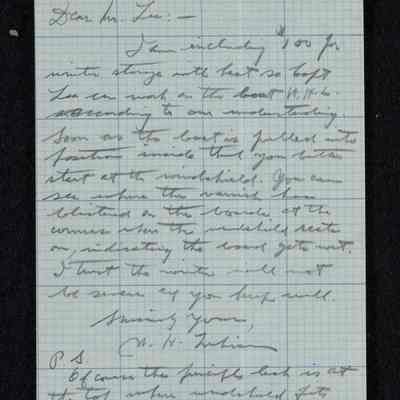 Dear Mr. Lee: —
I am including $100 for
winter storage with heat so Capt
Lee can work on the boat H.H.L.
according to our understanding.
Soon as the boat is pulled into
position inside that you better
start at the windshield. You can
see where the varnish has
blistered on the boards at the
corners where the windshield rests
on, indicating the wood gets wet.
I trust the winter will not
be severe and you keep well.
Sincerely Yours,
H. H.
P S
Of course the principle leak is at
the top where windshield fits